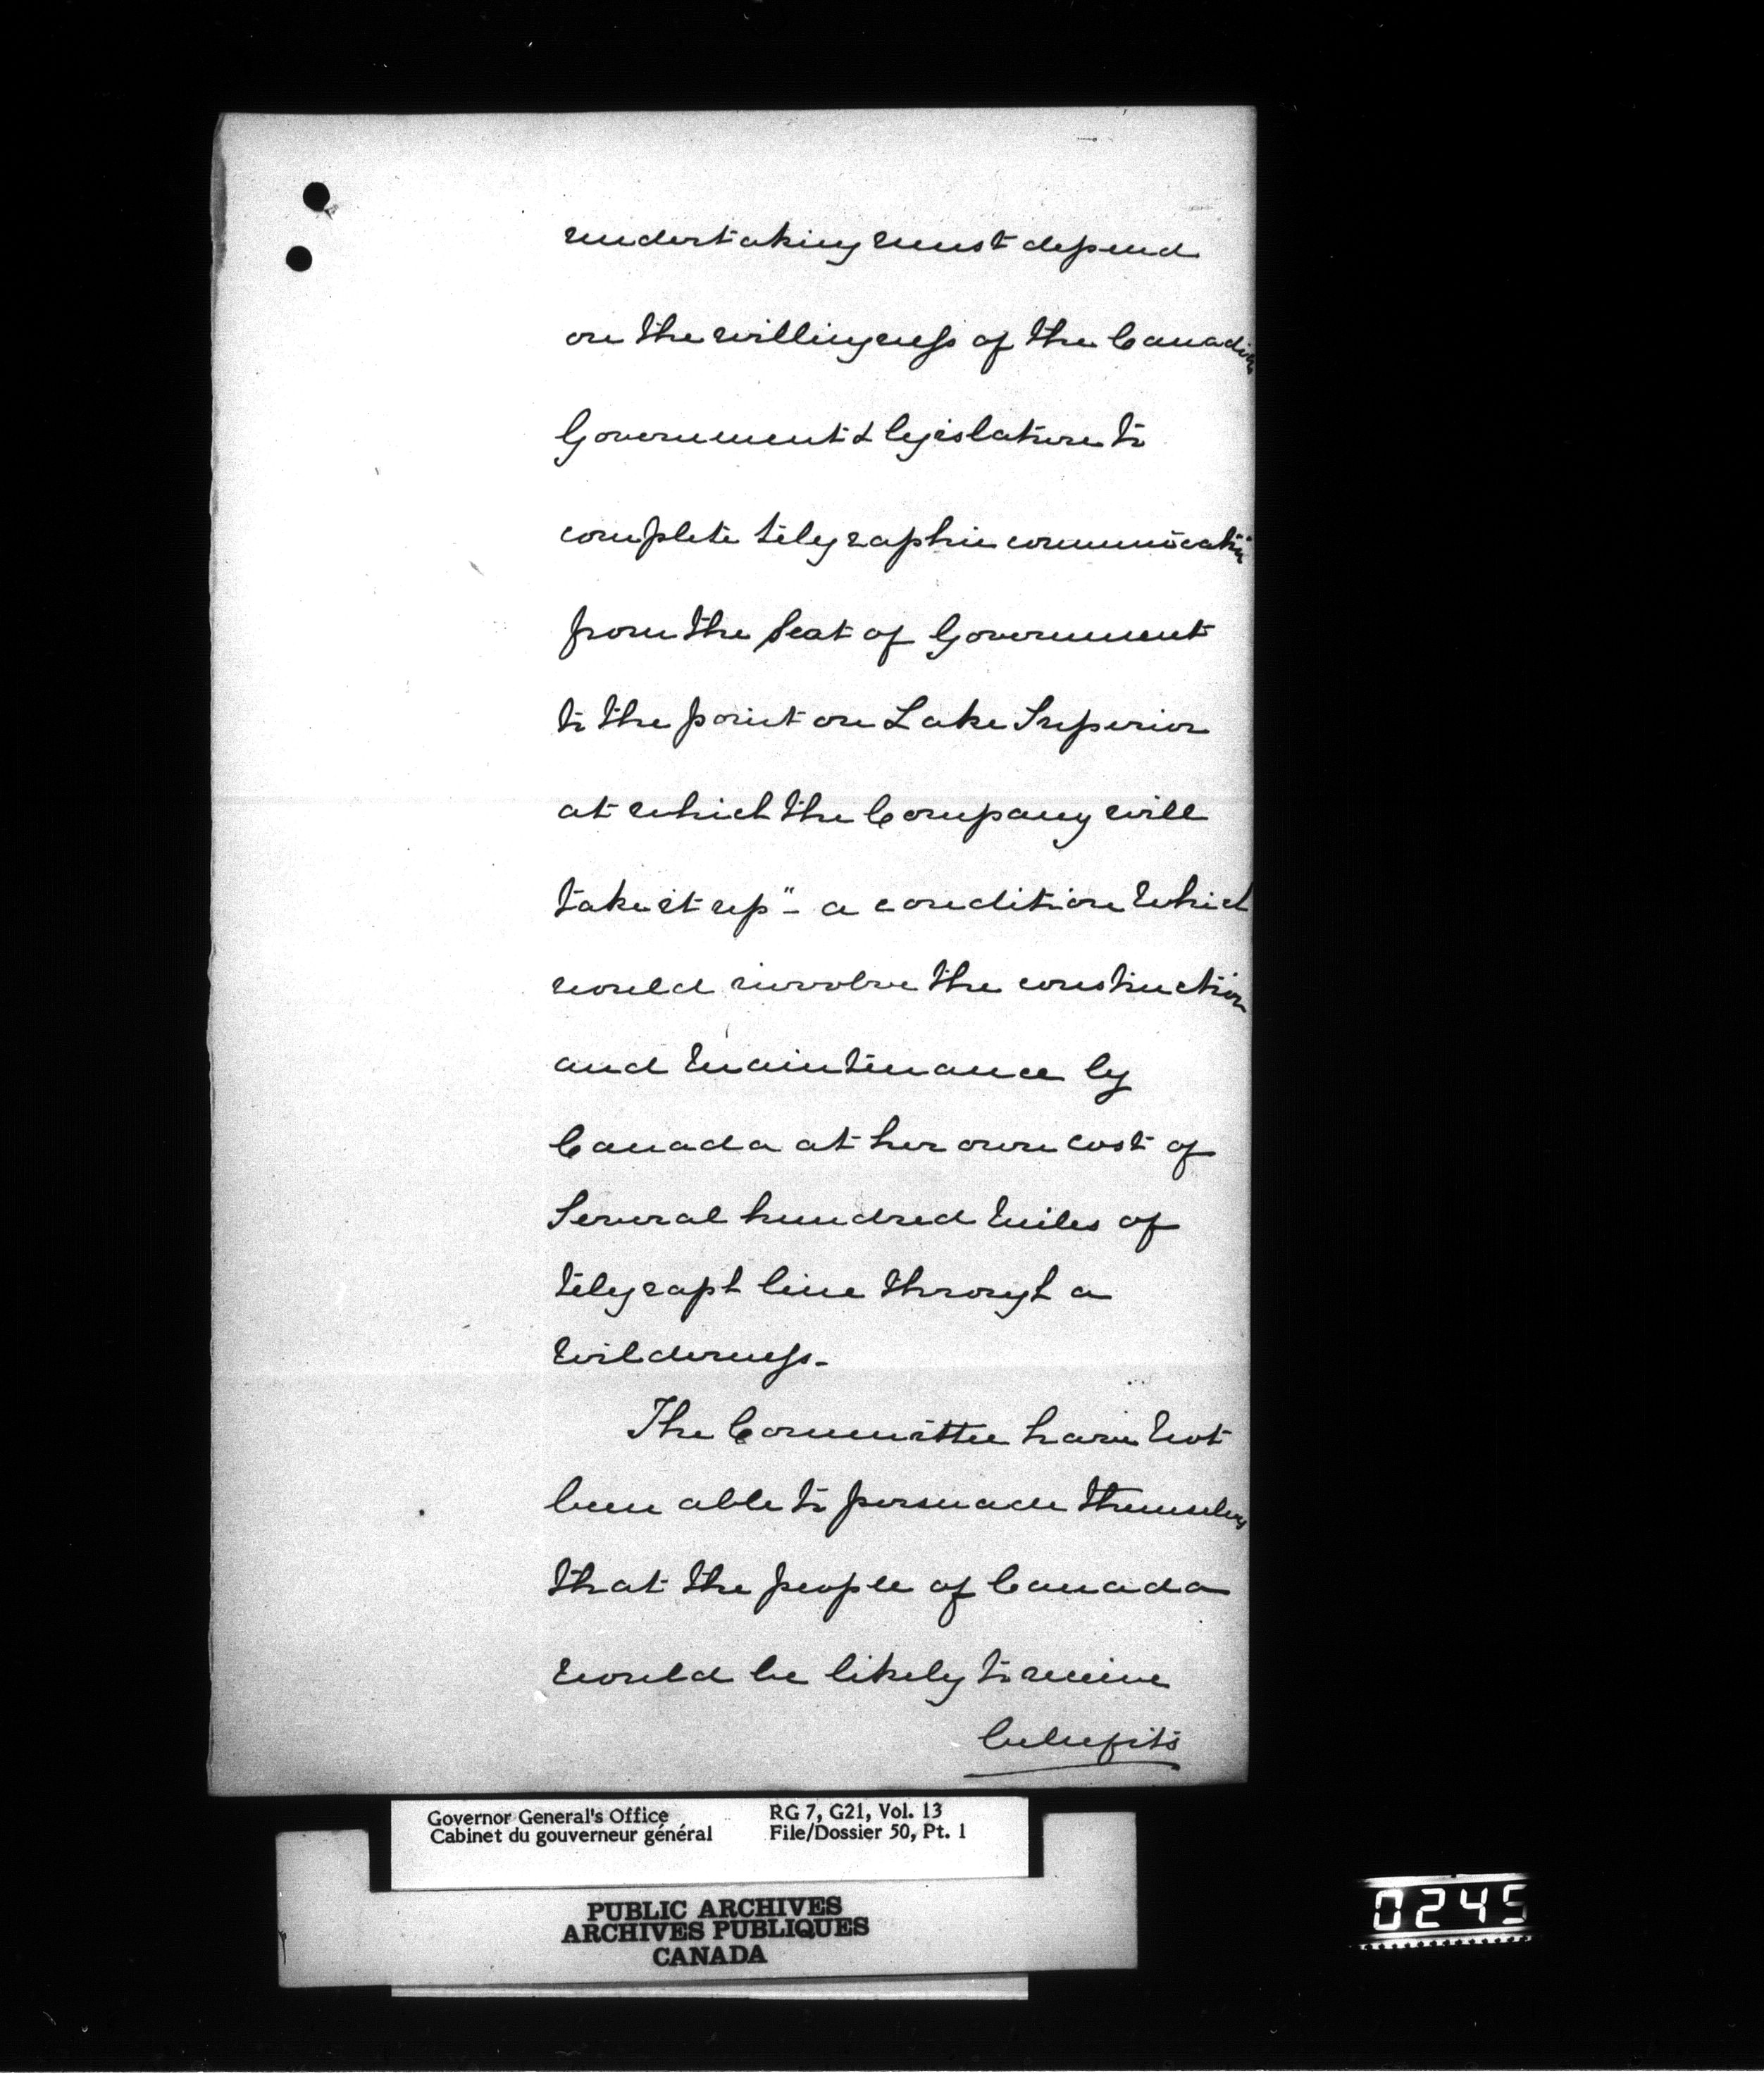 undertaking must depend
on the willingness of the Canadian
Government & legislature to
complete telegraphic communication
from the Seat of Government
to the point on Lake Superior
at which the Company will
take it up" – a condition which
would involve the construction
and maintenance by
Canada at her own cost of
Several hundred miles of
telegraph line through a
wilderness –
The Committee have not
been able to persuade themselves
that the people of Canada
would be likely to receive
benefits
Governor General's Office
Cabinet du gouverneur général
RG 7, G21, Vol. 13
File/Dossier 50, Pt. 1
PUBLIC ARCHIVES
ARCHIVES PUBLIQUES
CANADA
0245